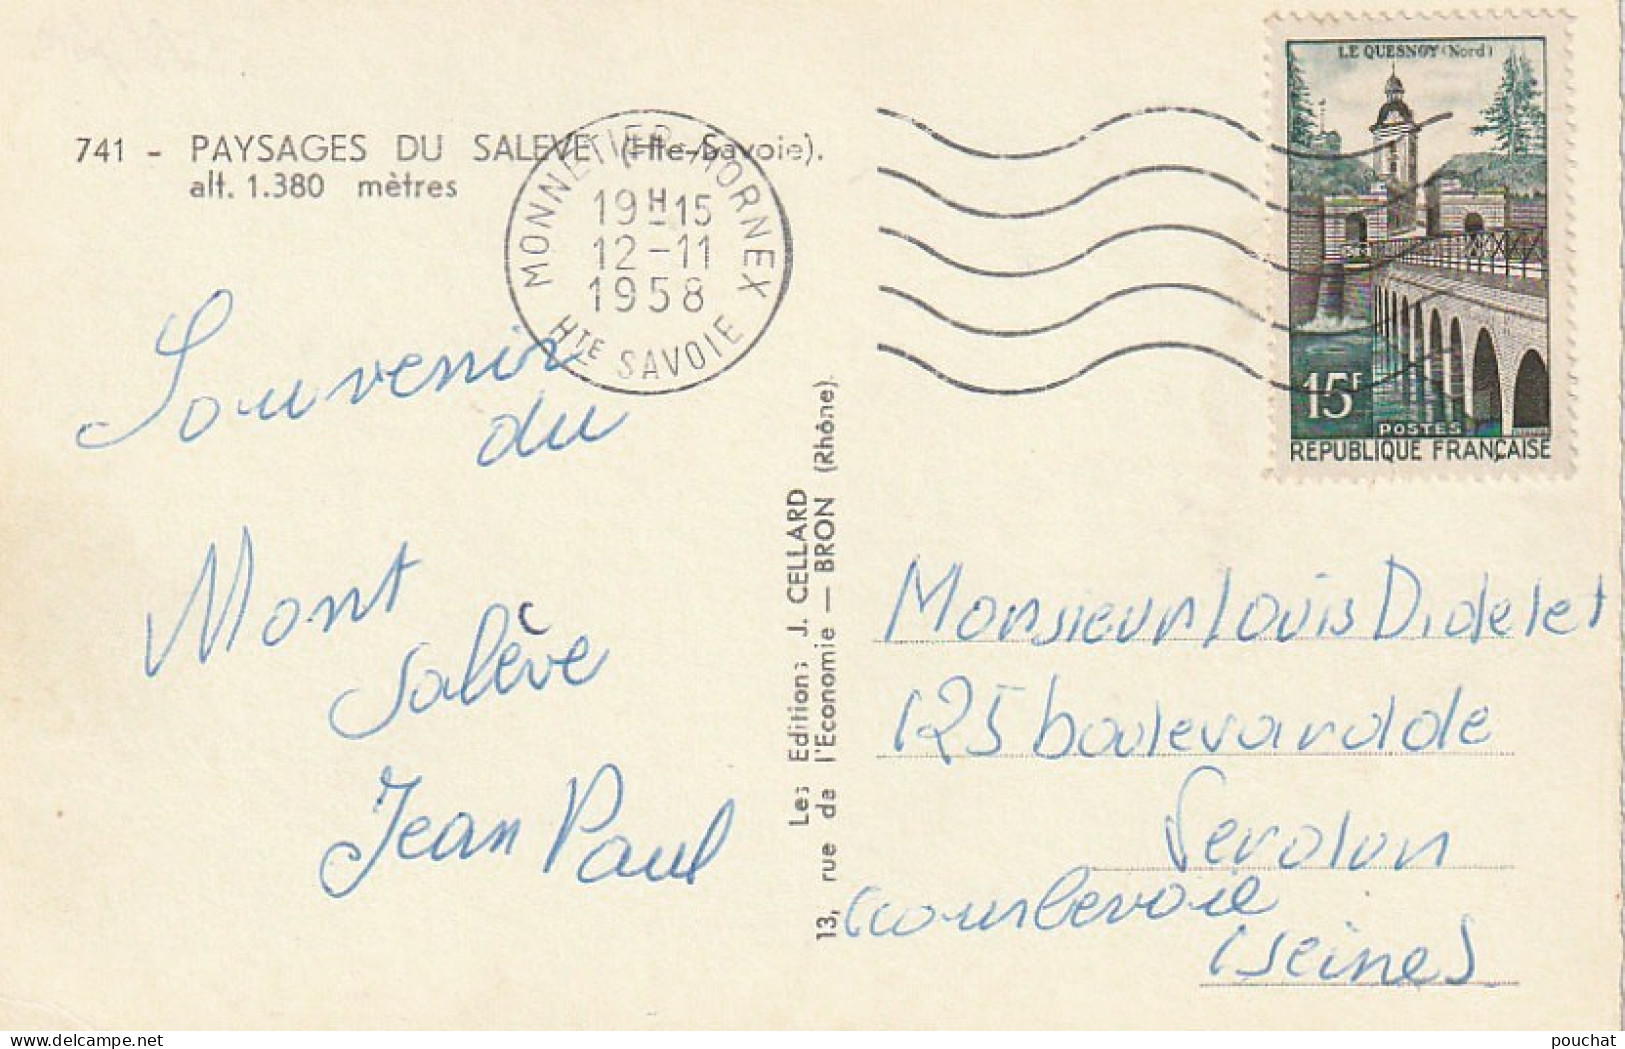 741 - PAYSAGES DU SALEVE (Hte-Savoie).
alt. 1.380 mètres
MONNETIER-MORNEX
19H15
12-11
1958
HTE SAVOIE
LE QUESNOY (Nord)
15F
POSTES
REPUBLIQUE FRANÇAISE
Souvenir
du
Mont
Salève
Jean Paul
Les Editions J. CELLARD
13, rue de l'Economie — BRON (Rhône).
Monsieur Louis Didelet
125 boulevard de
Verdun
Courbevoie
(Seine)
pouchat